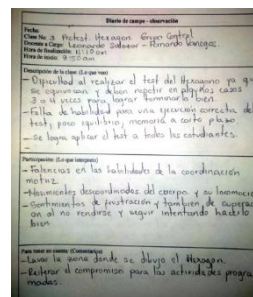 Diario de campo - observación
Fecha:
Clase No. 3 Pretest Hexagon. Grupo Control
Docente a Cargo: Leonardo Salazar - Fernando Venegas.
Hora de finalización: 11:10 am
Hora de inicio: 9:50 am
Descripción de la clase: (Lo que veo)
- Dificultad al realizar el test del Hexagono ya que
se equivocan y deben repetir en algunos casos
3 o 4 veces para lograr terminarlo bien.
- Falta de habilidad para una ejecución correcta del
test, poco equilibrio, memoria a corto plazo
- Se logra aplicar el test a todos los estudiantes.
Participación: (Lo que interpreto)
- Falencias en las habilidades de la coordinación
motriz.
- Movimientos descoordinados del cuerpo y su locomoción
- Sentimientos de frustración y tambien de superaci
on al no rendirse y seguir intentando hacerlo
bien
Para tener en cuenta: (Comentarios)
- Lavar la zona donde se dibujo el Hexagon.
- Reiterar el compromiso para las actividades progra
madas.